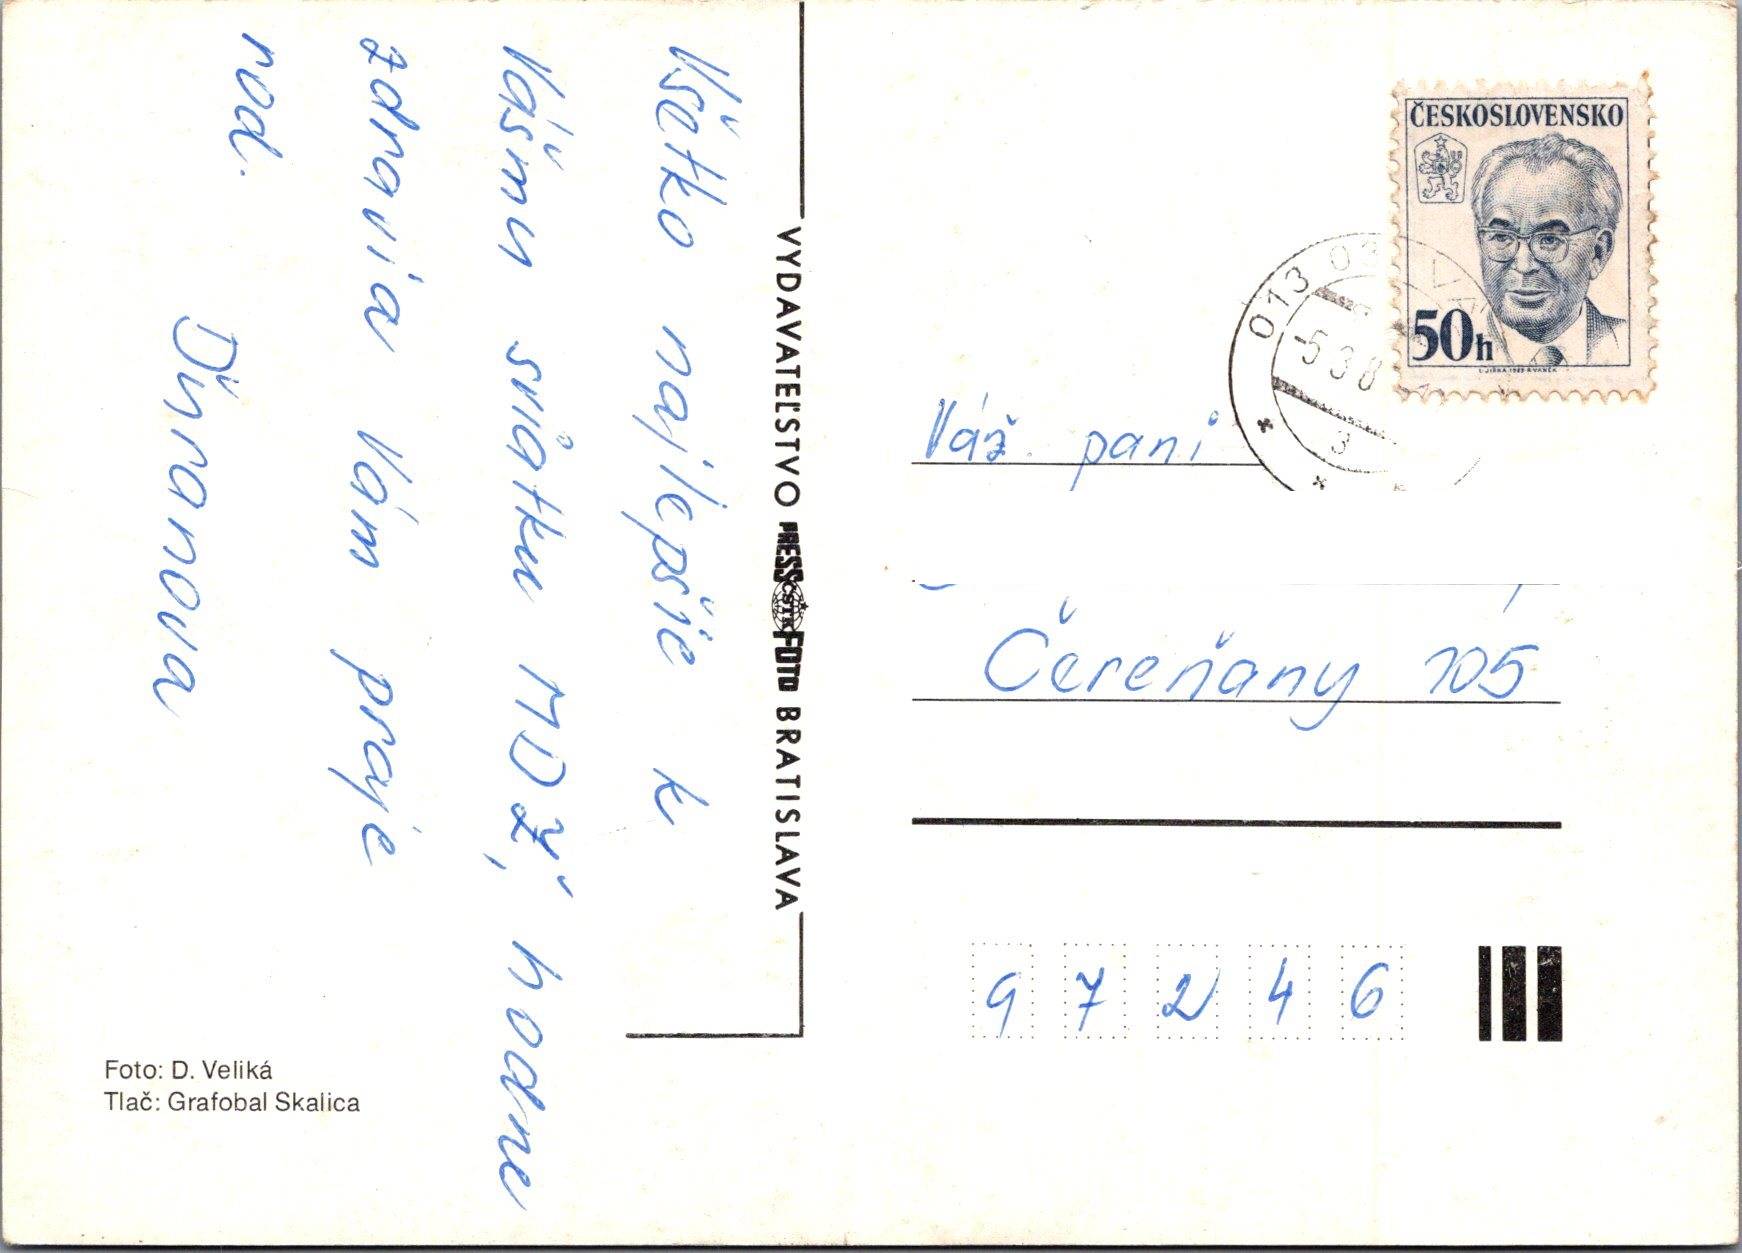 Všetko najlepšie k
Vášmu sviatku MDŽ, hodne
zdravia Vám praje
rod.
Ďuranova
VYDAVATEĽSTVO PRESSFOTO BRATISLAVA
ČSTK
Foto: D. Veliká
Tlač: Grafobal Skalica
ČESKOSLOVENSKO
50h
013 03
-5.3.8
3
Váž. pani
Čereňany 105
97246